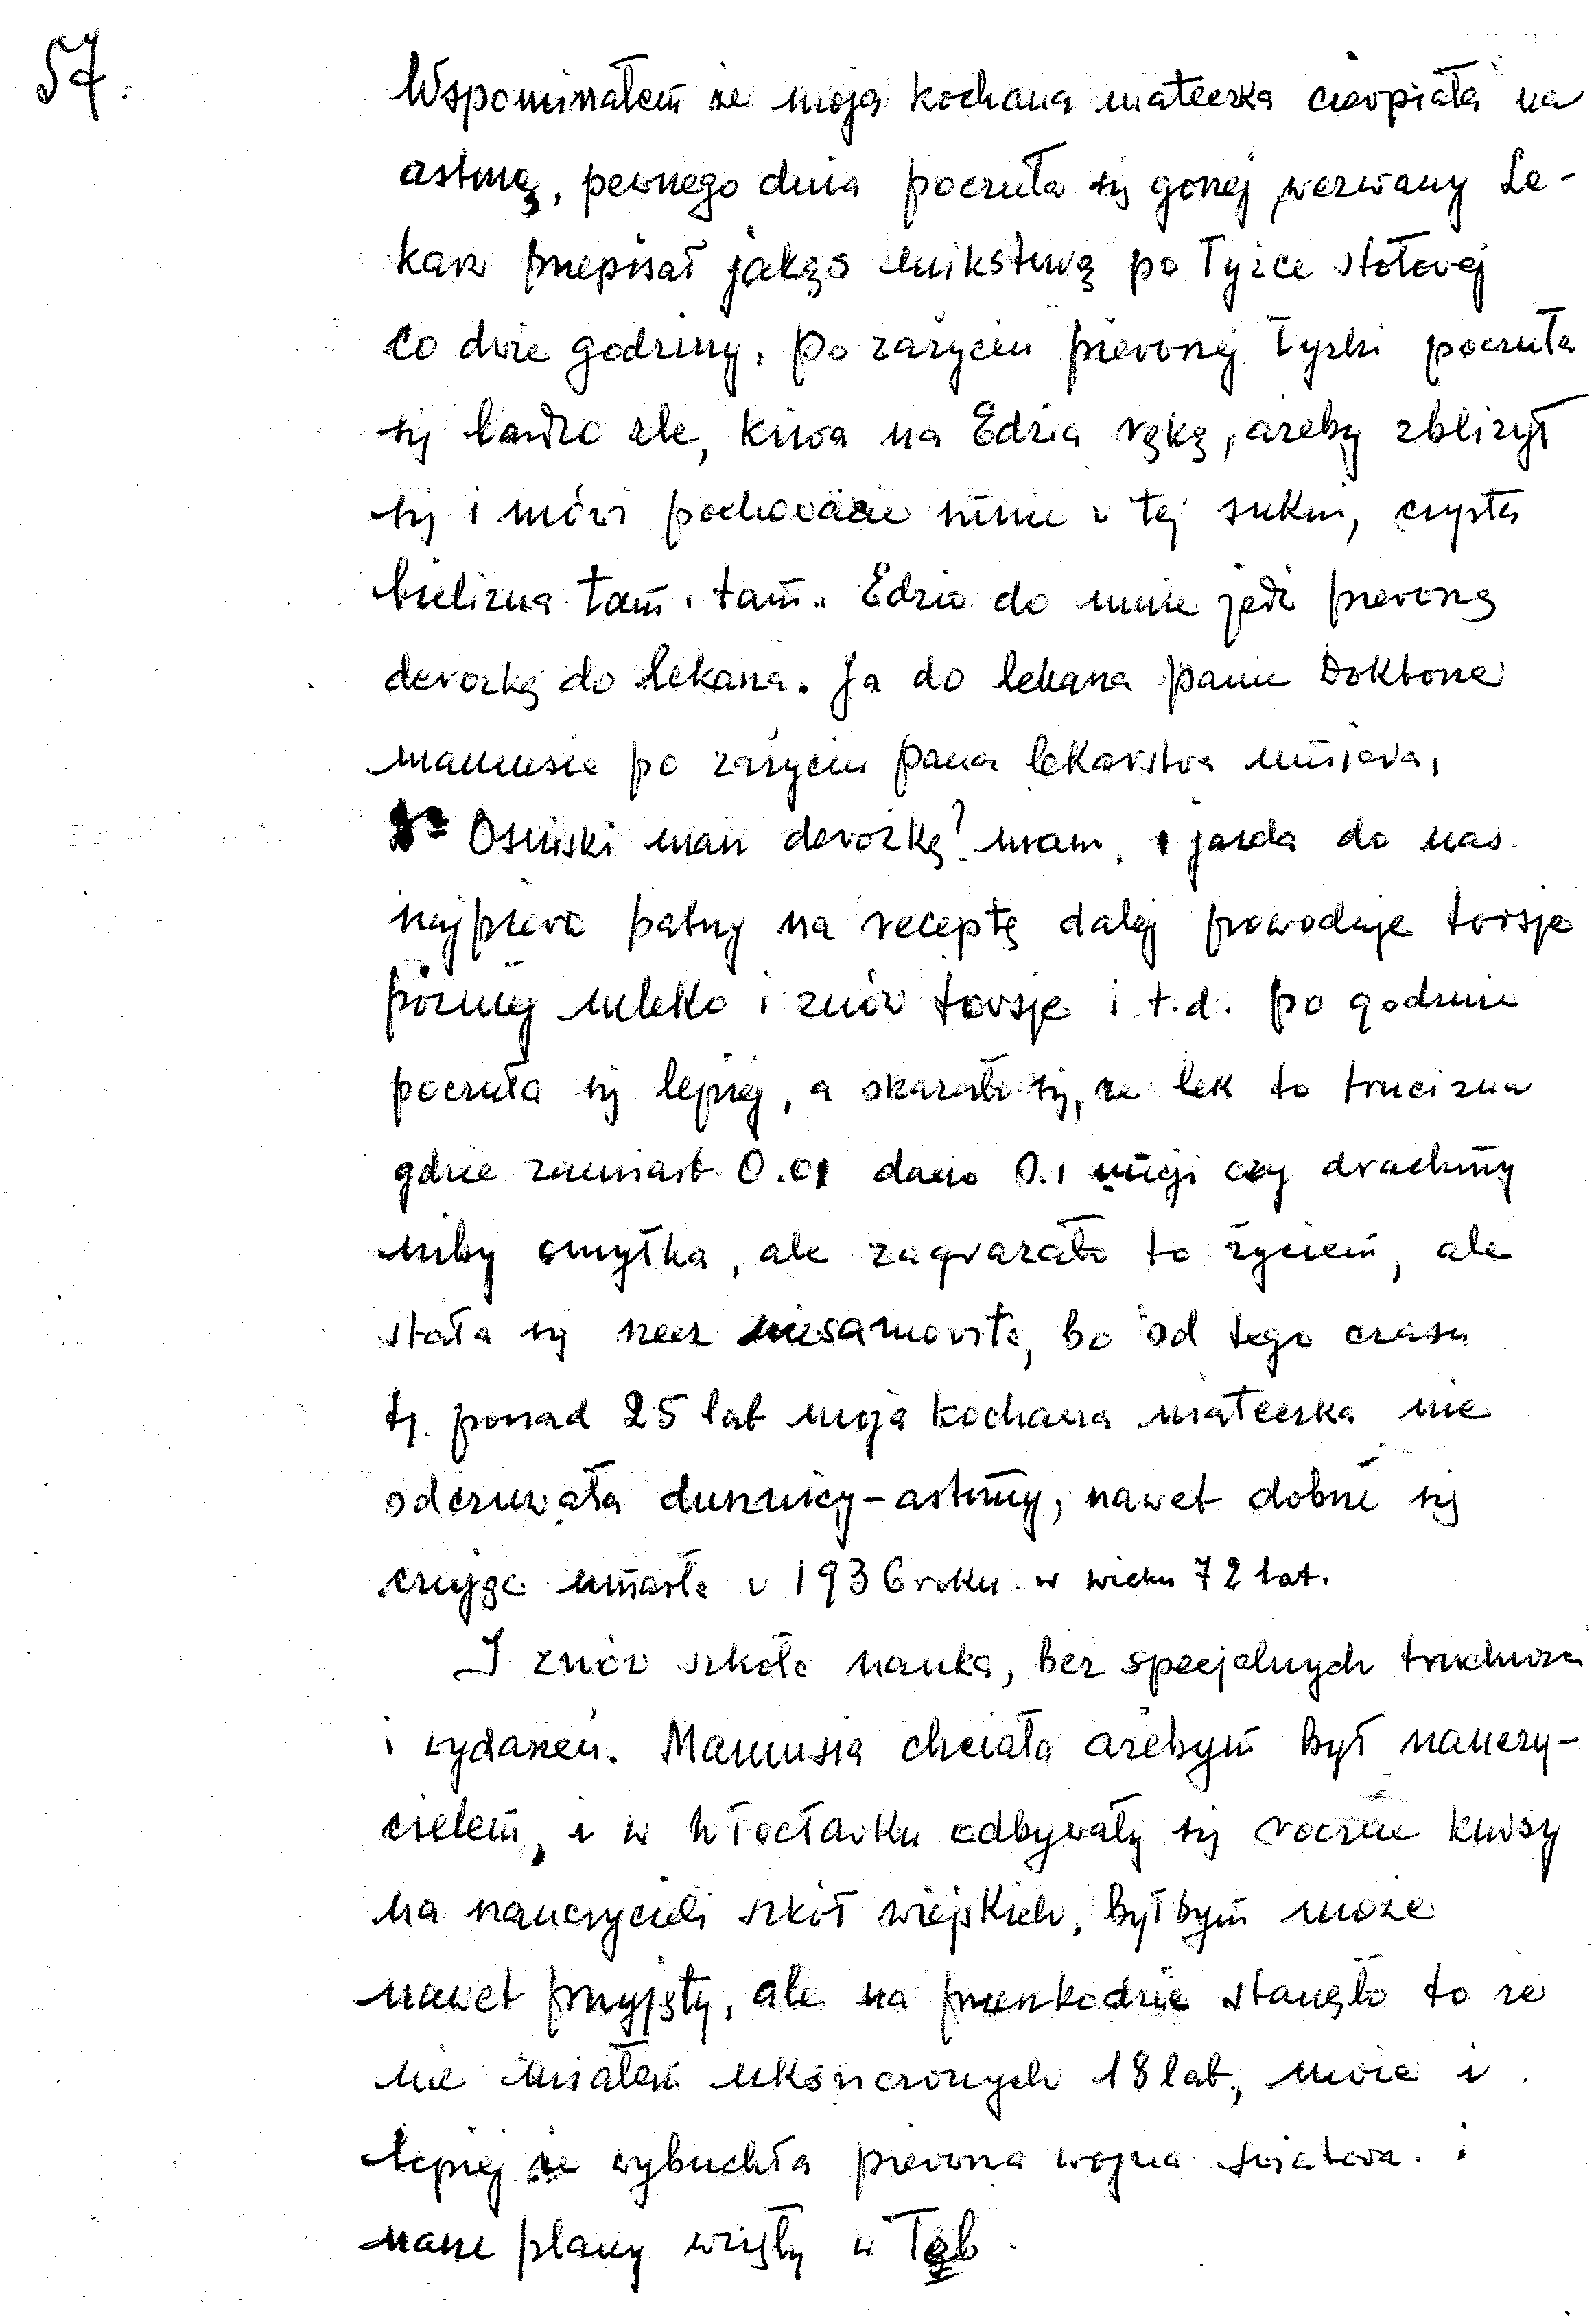 57.
Wspominałem że moja kochana mateczka cierpiała na
astmę, pewnego dnia poczuła się gorzej, wezwany Le-
karz przepisał jakąś miksturę po łyżce stołowej
co dwie godziny. po zażyciu pierwszej łyżki poczuła
się bardzo źle, kiwa na Edzia ręką, ażeby zbliżył
się i mówi pochowacie mnie w tej sukni, czysta
bielizna tam i tam. Edzio do mnie jedź pierwszą
dorożką do lekarza. Ja do lekarza panie Doktorze
mamusia po zażyciu pana lekarstwa umiera,
Dr Osmiski masz dorożkę? mam, i jazda do nas.
najpierw patrzy na receptę dalej prowoduje torsje
później mleko i znów torsje i t.d. po godzinie
poczuła się lepiej, a okazało się, że lek to trucizna
gdzie zamiast 0.01 dano 0.1 uncji czy drachmy
niby omyłka, ale zagrażało to życiem, ale
stała się rzecz niesamowita, bo od tego czasu
tj. ponad 25 lat moja kochana mateczka nie
odczuwała dusznicy-astmy, nawet dobrze się
czując umarła w 1936 roku w wieku 72 lat.
I znów szkoła nauka, bez specjalnych trudności
i wydarzeń. Mamusia chciała ażebym był nauczy-
cielem, i w Włocławku odbywały się roczne kursy
na nauczycieli szkół wiejskich, byłbym może
nawet przyjęty, ale na przeszkodzie stanęło to że
nie miałem ukończonych 18 lat, może i
lepiej że wybuchła pierwsza wojna światowa. i
nasze plany wzięły w łeb.